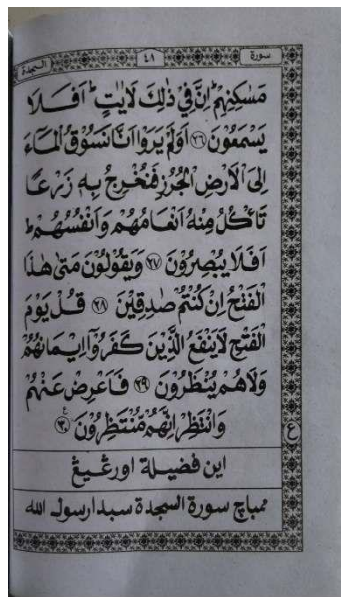 سورة ٤١ السجدة
مَسٰكِنِهِمْ ؕ اِنَّ فِيْ ذٰلِكَ لَاٰيٰتٍ ؕ اَفَلَا
يَسْمَعُوْنَ ٢٦ اَوَلَمْ يَرَوْا اَنَّا نَسُوْقُ الْمَآءَ
اِلَى الْاَرْضِ الْجُرُزِ فَنُخْرِجُ بِهٖ زَرْعًا
تَاْكُلُ مِنْهُ اَنْعَامُهُمْ وَاَنْفُسُهُمْ ؕ
اَفَلَا يُبْصِرُوْنَ ٢٧ وَيَقُوْلُوْنَ مَتٰى هٰذَا
الْفَتْحُ اِنْ كُنْتُمْ صٰدِقِيْنَ ٢٨ قُلْ يَوْمَ
الْفَتْحِ لَا يَنْفَعُ الَّذِيْنَ كَفَرُوْٓا اِيْمَانُهُمْ
وَلَا هُمْ يُنْظَرُوْنَ ٢٩ فَاَعْرِضْ عَنْهُمْ
وَانْتَظِرْ اِنَّهُمْ مُّنْتَظِرُوْنَ ٣٠
ع
اين فضيلة اورڠيڠ
ممباچ سورة السجدة سبدا رسول الله